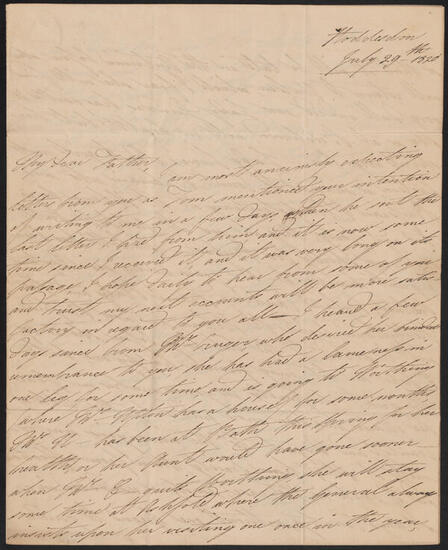 Hoddesdon
July 29th 1820
My dear Father,
I am most anxiously expecting
letters from you as Tom mentioned your intention
of writing to me in a few days when he sent the
last letter I had from him and it is now some
time since I received it, and it was very long on its
passage, I hope daily to hear from some of you
and trust my next accounts will be more satis
factory in regard to you all — I heard a few
days since from Mrs who desired her kindest
remembrance to you she has had a lameness in
one leg for some time and is going to Worthing
where Mrs has a house for some months
Mrs U — has been at Bath this Spring for her
health, or her Aunt would have gone sooner
when Mrs E — quits Worthing she will stay
some time at where the General always
insists upon her visiting one once in the year,